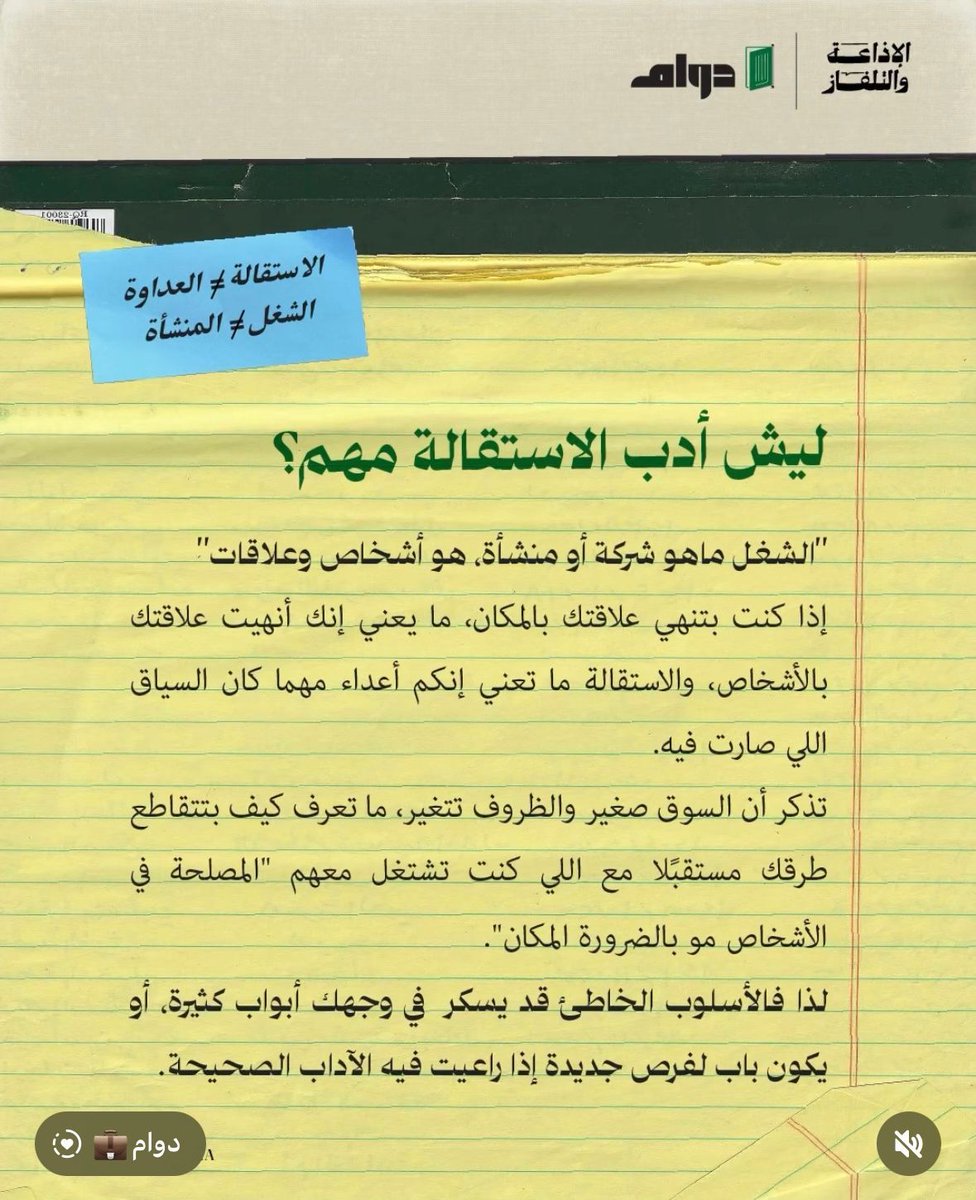 الإذاعة
والتلفاز
دوام
RQ-23001
الاستقالة ≠ العداوة
الشغل ≠ المنشأة
ليش أدب الاستقالة مهم؟
"الشغل ماهو شركة أو منشأة، هو أشخاص وعلاقات"
إذا كنت بتنهي علاقتك بالمكان، ما يعني إنك أنهيت علاقتك
بالأشخاص، والاستقالة ما تعني إنكم أعداء مهما كان السياق
اللي صارت فيه.
تذكر أن السوق صغير والظروف تتغير، ما تعرف كيف بتتقاطع
طرقك مستقبًلا مع اللي كنت تشتغل معهم "المصلحة في
الأشخاص مو بالضرورة المكان".
لذا فالأسلوب الخاطئ قد يسكر في وجهك أبواب كثيرة، أو
يكون باب لفرص جديدة إذا راعيت فيه الآداب الصحيحة.
دوام